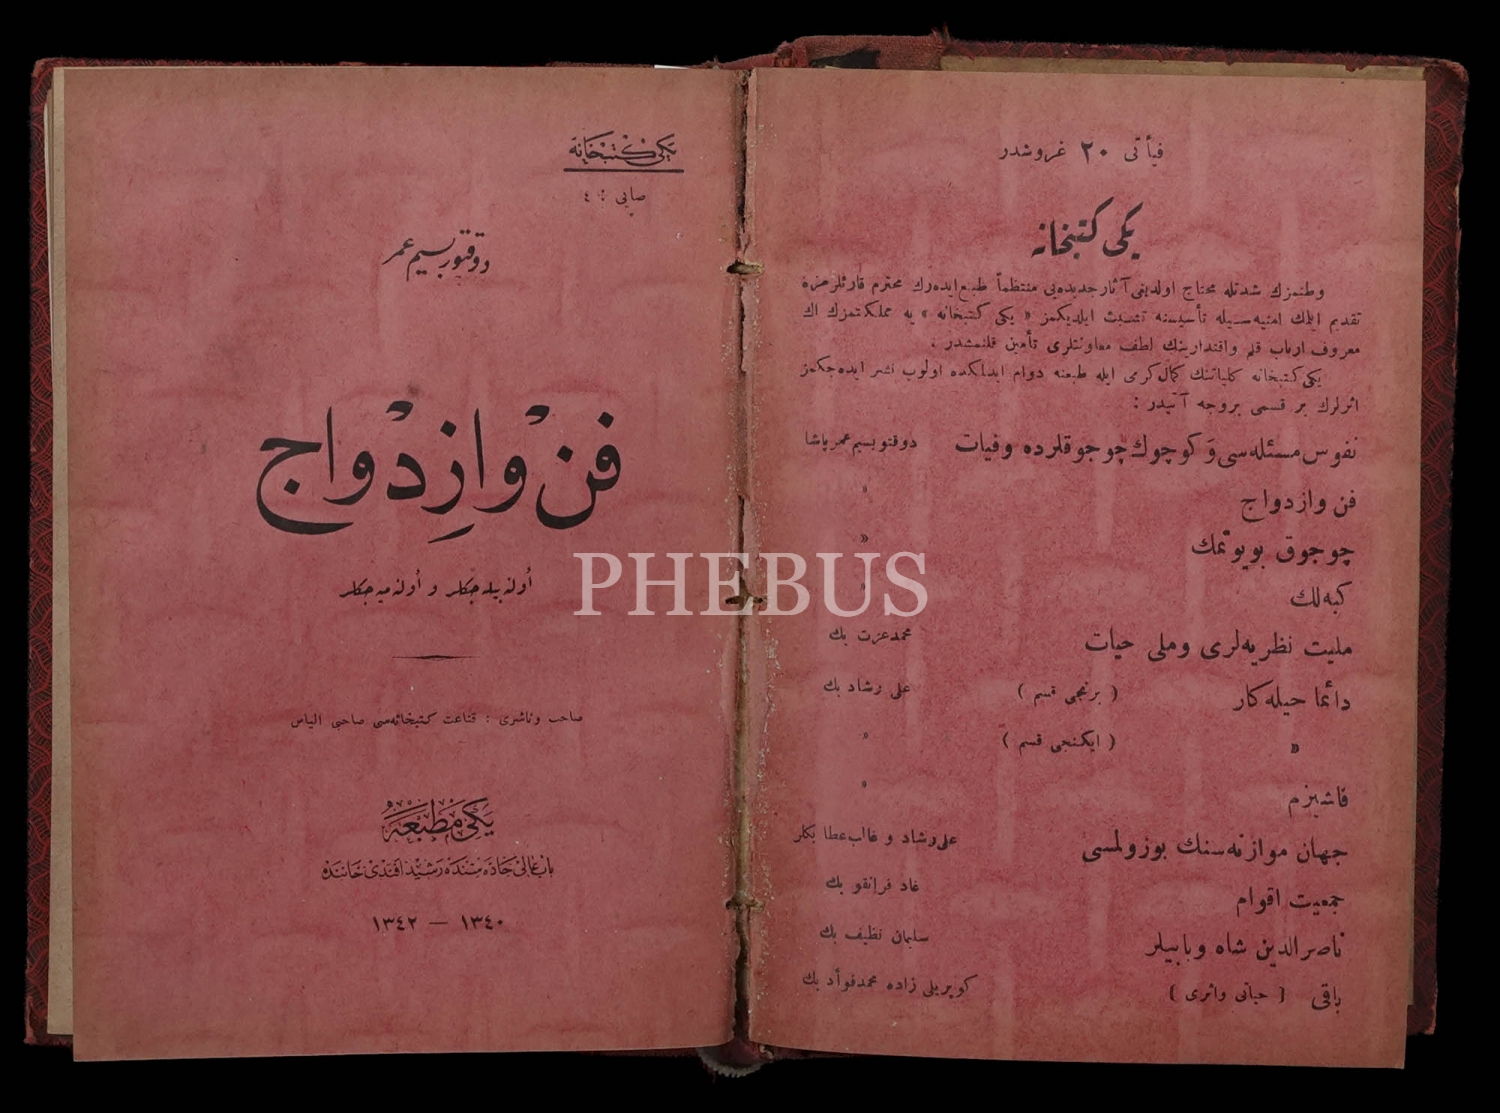 یكی كتبخانه
صایی : ٤
دوقتور بسیم عمر
فن و ازدواج
أولنه بیله جكلر و أولنه میه جكلر
صاحب و ناشری : قناعت كتبخانه‌سی صاحبی الیاس
یكی مطبعه
باب عالی جاده سنده رشید افندی خاننده
١٣٤٠ — ١٣٤٢
فیأتی ٢٠ غروشدر
یكی كتبخانه
وطنمزك شدتله محتاج اولدیغی آثار جدیده‌یی منتظماً طبع ایده‌رك محترم قارئلرمزه
تقدیم ایتمك امنیه‌سیله تأسیسنه تشبث ایلدیكمز « یكی كتبخانه » یه مملكتمزك اك
معروف ارباب قلم واقتدارینك لطف معاونتلری تأمین قلنمشدر .
یكی كتبخانه كلیاتنك كمال كرمی ایله طبعنه دوام ایدلمكده اولوب نشر ایده‌جكمز
اثرلرك بر قسمی بروجه آتیدر :
نفوس مسئله‌سی و كوچوك چوجوقلرده وفیات دوقتور بسیم عمر پاشا
فن وازدواج »
چوجوق بویوتمك »
كبه‌لك »
ملیت نظریه‌لری وملی حیات محمد عزت بك
دائما حیله‌كار ( برنجی قسم ) علی رشاد بك
» ( ایكنجی قسم ) »
فاشیزم »
جهان موازنه‌سنك بوزولمسی علی رشاد و غالب عطا بكلر
جمعیت اقوام غاد فرانقو بك
ناصرالدین شاه و بابیلر سلیمان نظیف بك
باقی [ حیاتی واثری ] كوپریلی زاده محمد فوأد بك
PHEBUS